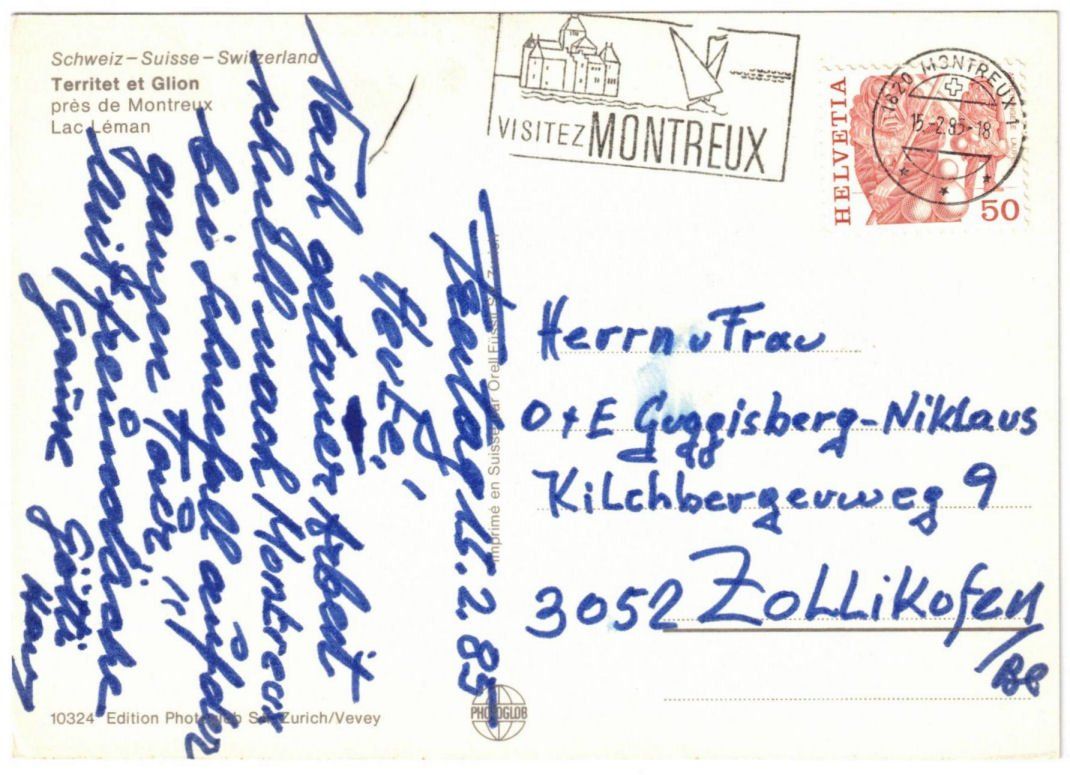 Schweiz – Suisse – Switzerland
Territet et Glion
près de Montreux
Lac Léman
VISITEZ MONTREUX
1820 MONTREUX 1
15.-2.85-18
HELVETIA
50
Freitag 15. 2. 85
Nach getaner Arbeit
schnell nach Montreux
bei Schneefall auf der
ganzen
Mit freundliche
Grüsse
Herrn u Frau
O+E Guggisberg-Niklaus
Kilchbergerweg 9
3052 Zollikofen
/BE
Imprimé en Suisse par Orell Füssli SA Zurich
10324 Edition Photoglob SA, Zurich/Vevey
PHOTOGLOB